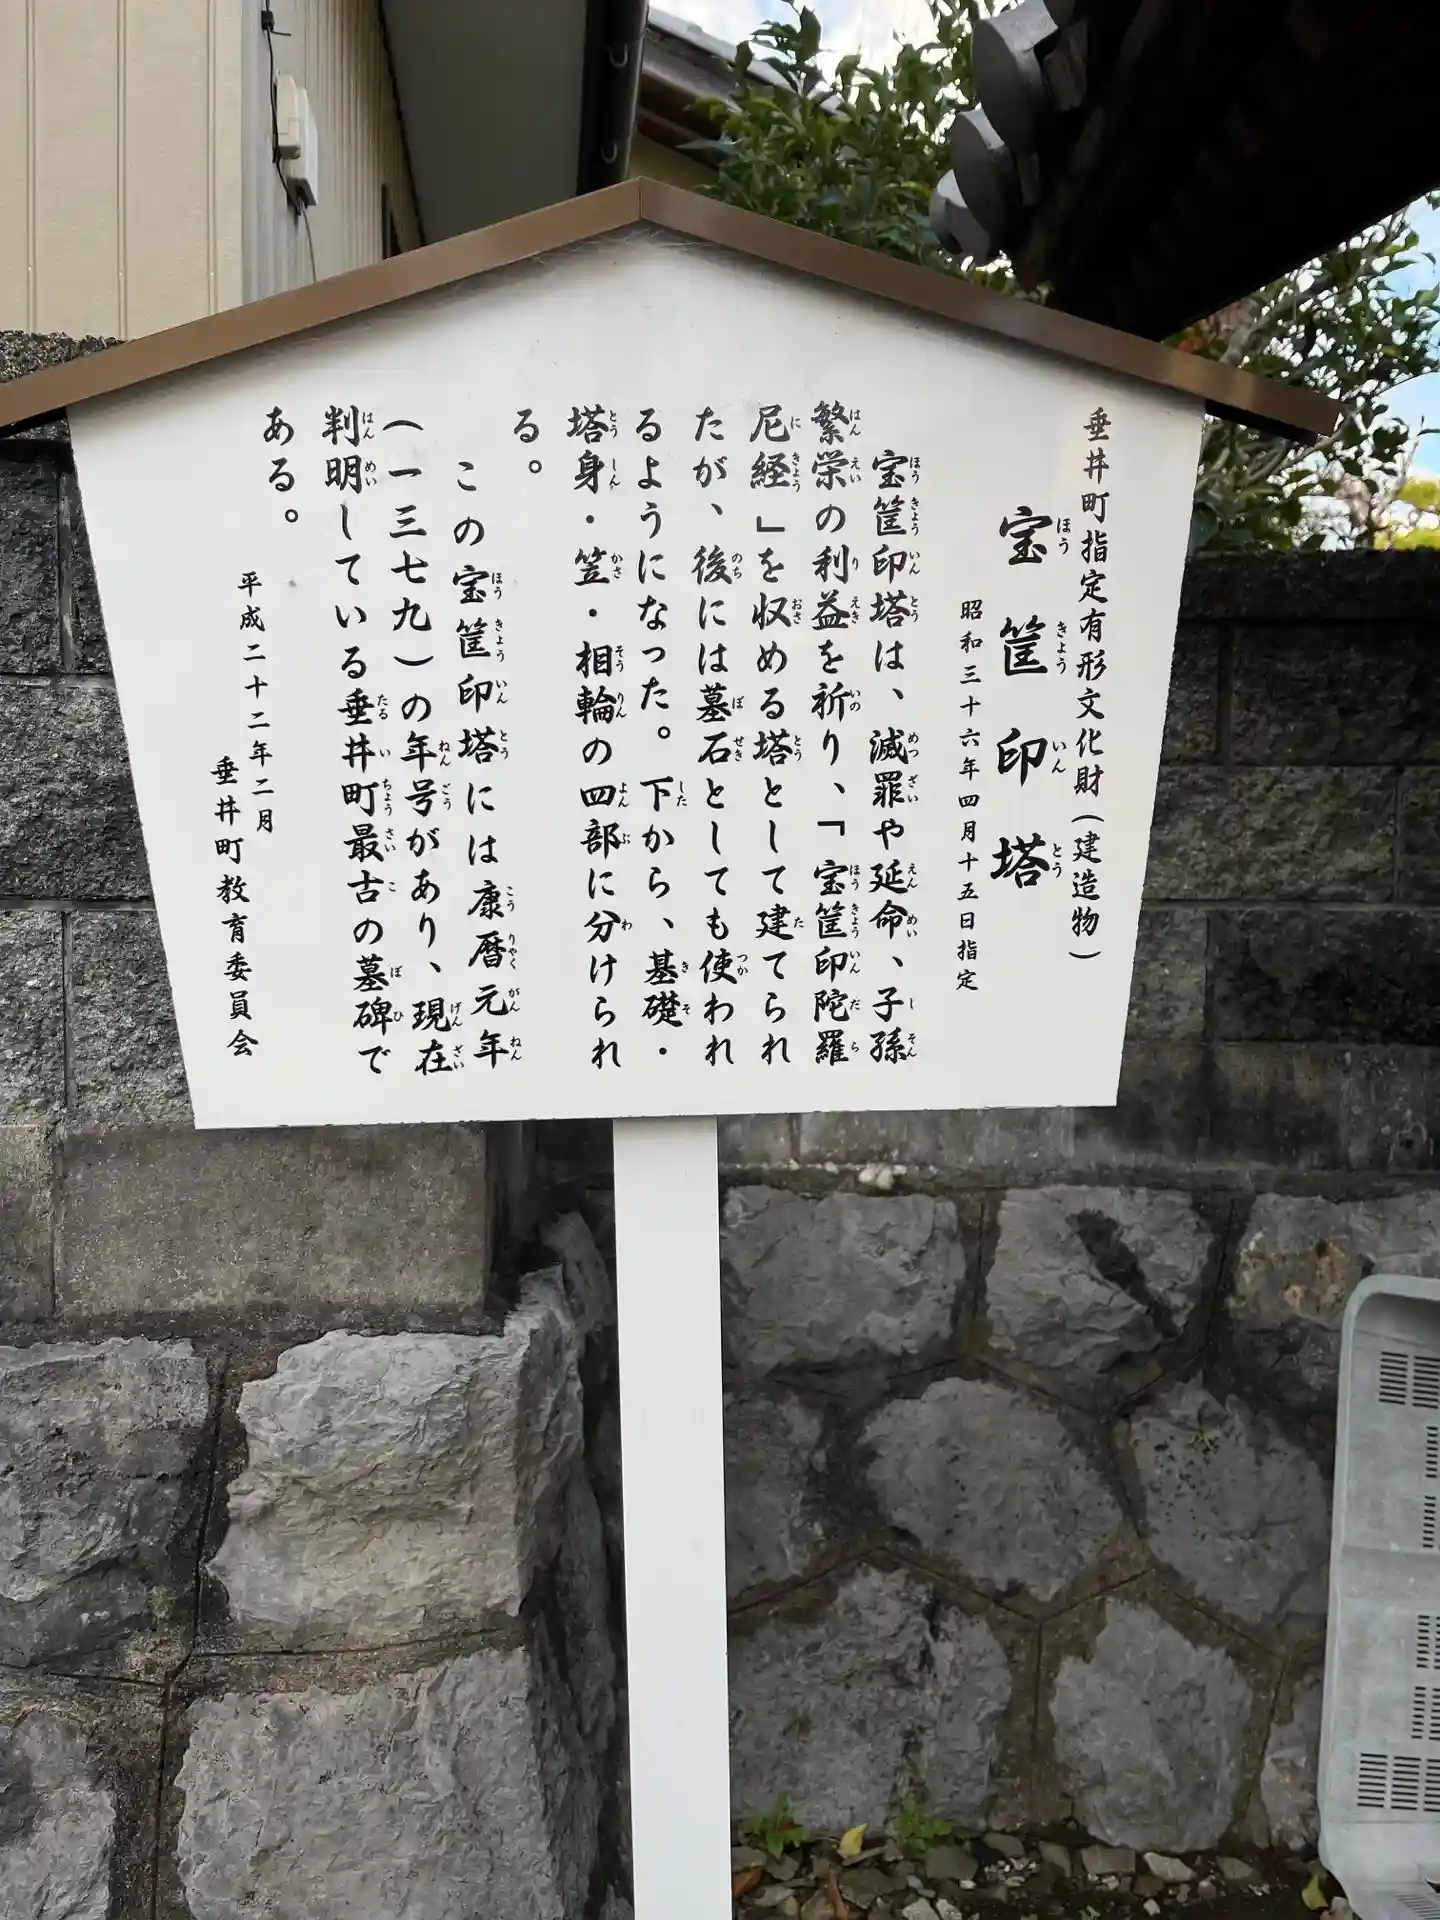 垂井町指定有形文化財(建造物)
宝篋印塔
ほうきょういんとう
昭和三十六年四月十五日指定
宝筐印塔は、滅罪や延命、子孫
繁栄の利益を祈り、「宝筐印陀羅
尼経」を収める塔として建てられ
たが、後には墓石としても使われ
るようになった。下から、基礎・
塔身・笠・相輪の四部に分けられ
る。
この宝筐印塔には康暦元年
(一三七九)の年号があり、現在
判明している垂井町最古の墓碑で
ある。
平成二十二年二月
垂井町教育委員会